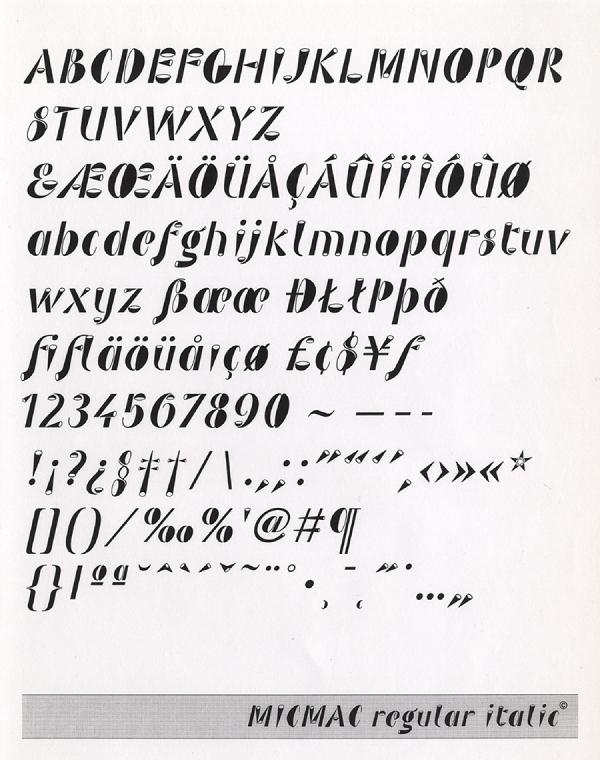 ABCDEFGHIJKLMNOPQR
STUVWXYZ
&ÆŒÄÖÜÅÇÁÛÍÏÎÓÙØ
abcdefghijklmnopqrstuv
wxyz ßæœ ÐŁłÞþð
fifläöüåıçø £¢$¥ƒ
1234567890 ~ — – -
!¡?¿§‡†/\.,„:;”“‘’,‹›»«*
[]()/‰%'@#¶
{}|ºª˘^`´ˇ~¨°•¸¯˛˝˙…„
MICMAC regular italic©